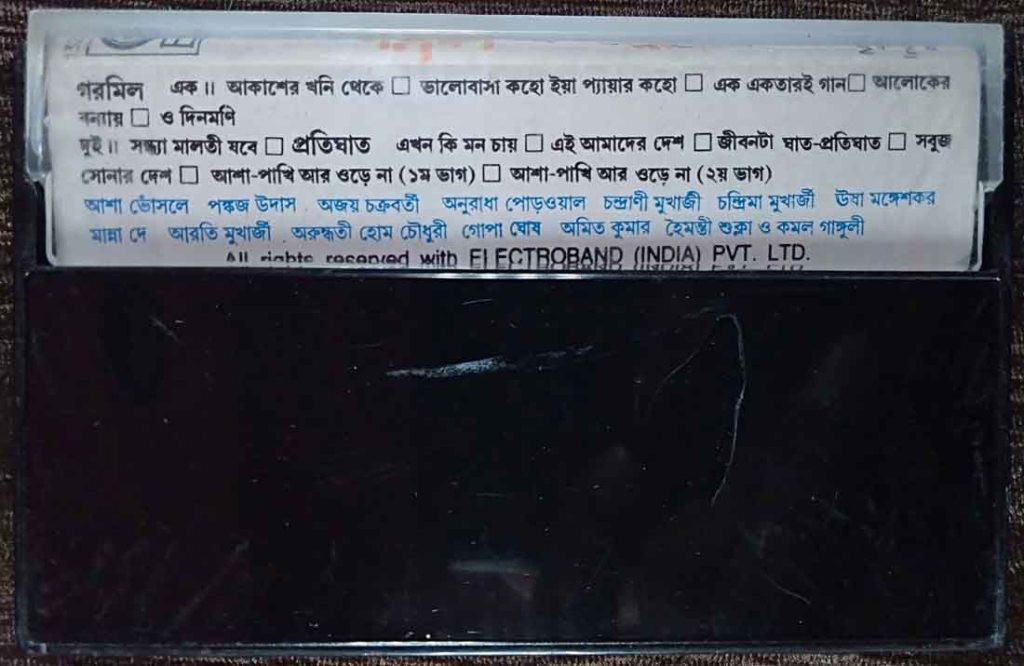 গরমিল এক ॥ আকাশের খনি থেকে □ ভালোবাসা কহো ইয়া প্যায়ার কহো □ এক একতারই গান □ আলোকের
বন্যায় □ ও দিনমণি
দুই ॥ সন্ধ্যা মালতী যবে □ প্রতিঘাত এখন কি মন চায় □ এই আমাদের দেশ □ জীবনটা ঘাত-প্রতিঘাত □ সবুজ
সোনার দেশ □ আশা-পাখি আর ওড়ে না (১ম ভাগ) □ আশা-পাখি আর ওড়ে না (২য় ভাগ)
আশা ভোঁসলে পঙ্কজ উদাস অজয় চক্রবর্তী অনুরাধা পোড়ওয়াল চন্দ্রাণী মুখার্জী চন্দ্রিমা মুখার্জী ঊষা মঙ্গেশকর
মান্না দে আরতি মুখার্জী অরুন্ধতী হোম চৌধুরী গোপা ঘোষ অমিত কুমার হৈমন্তী শুক্লা ও কমল গাঙ্গুলী
All rights reserved with ELECTROBAND (INDIA) PVT. LTD.